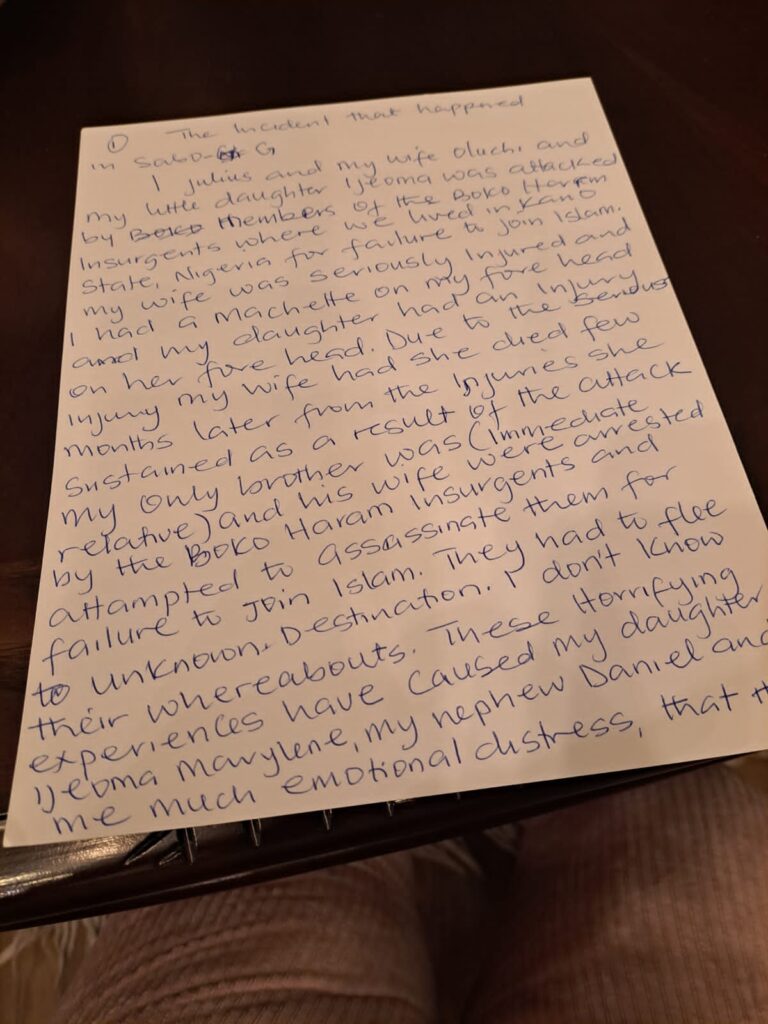 ① The Incident that happened
in Sabo-G
I julius and my wife Oluchi and
my little daughter Ijeoma was attacked
by Boko members of the Boko Haram
Insurgents where we lived in Kano
State, Nigeria for failure to join Islam.
my wife was seriously Injured and
I had a machette on my fore head
and my daughter had an Injury
on her fore head. Due to the serious
Injury my wife had she died few
months later from the Injuries she
sustained as a result of the attack
my only brother was (immediate
relative) and his wife were arrested
by the BOKO Haram Insurgents and
attampted to assassinate them for
failure to Join Islam. They had to flee
to unknown Destination. I don't know
their whereabouts. These Horrifying
experiences have caused my daughter
Ijeoma Marylene, my nephew Daniel and
me much emotional distress, that